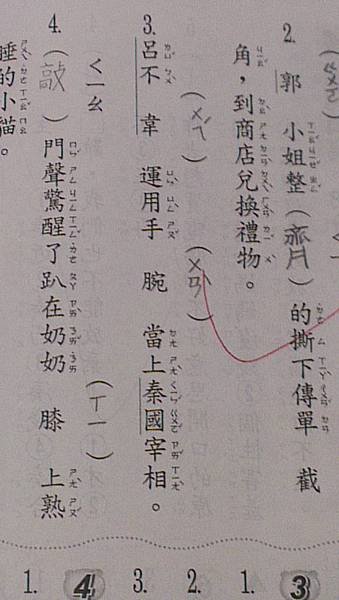 (ㄍㄨㄛ)
2. 郭 小姐整(齊)的撕下傳單 截
角,到商店兌換禮物。
(ㄨㄟˊ) (ㄨㄢˋ)
3. 呂不 韋 運用手 腕 當上秦國宰相。
ㄑㄧㄠ (ㄒㄧ)
4. (敲)門聲驚醒了趴在奶奶 膝 上熟
睡的小貓。
3
1.
2.
3.
4
1.